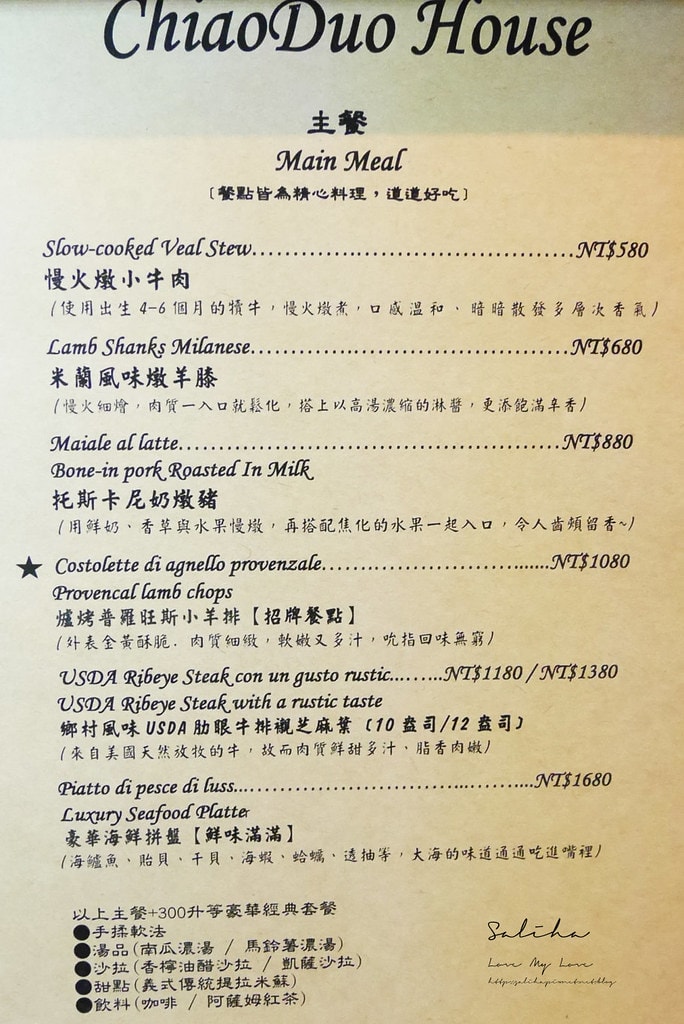 ChiaoDuo House
主餐
Main Meal
〔餐點皆為精心料理，道道好吃〕
Slow-cooked Veal Stew.......................................NT$580
慢火燉小牛肉
(使用出生 4-6 個月的犢牛，慢火燉煮，口感溫和、暗暗散發多層次香氣)
Lamb Shanks Milanese.......................................NT$680
米蘭風味燉羊膝
(慢火細燴，肉質一入口就鬆化，搭上以高湯濃縮的淋醬，更添飽滿辛香)
Maiale al latte.......................................NT$880
Bone-in pork Roasted In Milk
托斯卡尼奶燉豬
(用鮮奶、香草與水果慢燉，再搭配焦化的水果一起入口，令人齒頰留香~)
★ Costolette di agnello provenzale..............................NT$1080
Provencal lamb chops
爐烤普羅旺斯小羊排【招牌餐點】
(外表金黃酥脆. 肉質細緻，軟嫩又多汁，吮指回味無窮)
USDA Ribeye Steak con un gusto rustic.........NT$1180 / NT$1380
USDA Ribeye Steak with a rustic taste
鄉村風味 USDA 肋眼牛排襯芝麻葉 (10 盎司/12 盎司)
(來自美國天然放牧的牛，故而肉質鮮甜多汁、脂香肉嫩)
Piatto di pesce di luss.......................................NT$1680
Luxury Seafood Platter
豪華海鮮拼盤【鮮味滿滿】
(海鱸魚、貽貝、干貝、海蝦、蛤蠣、透抽等，大海的味道通通吃進嘴裡)
以上主餐+300升等豪華經典套餐
●手揉軟法
●湯品(南瓜濃湯 / 馬鈴薯濃湯)
●沙拉(香檸油醋沙拉 / 凱薩沙拉)
●甜點(義式傳統提拉米蘇)
●飲料(咖啡 / 阿薩姆紅茶)
Saliha
Love My Love